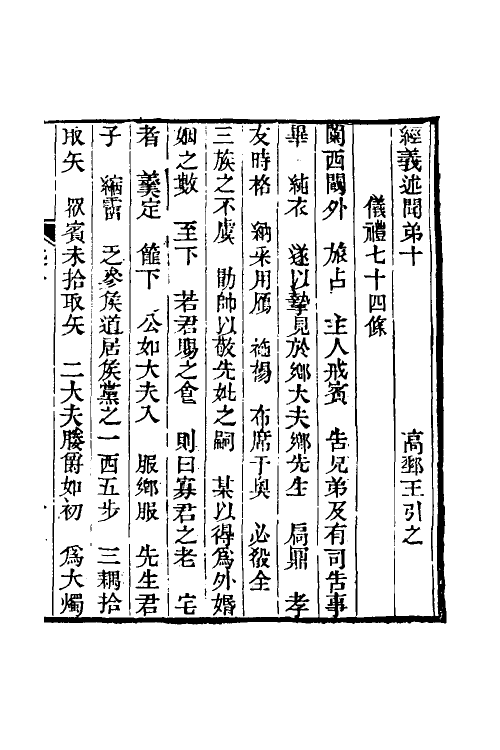 經義述聞弟十　高郵王引之
儀禮七十四條
闑西閾外　旅占　主人戒賓　告兄弟及有司告事
畢　純衣　遂以摯見於鄉大夫鄉先生　扃鼎　孝
友時格　納采用鴈　袒裼　布席于奧　必殺全
三族之不虞　勖帥以敬先妣之嗣　某以得為外婚
姻之數　至下　若君賜之食　則曰寡君之老　宅
者　羹定　餕下　公如大夫入　服鄉服　先生君
子　縮霤　乏參矦道居矦黨之一西五步　三耦拾
取矢　眾賓未拾取矢　二大夫媵爵如初　為大燭